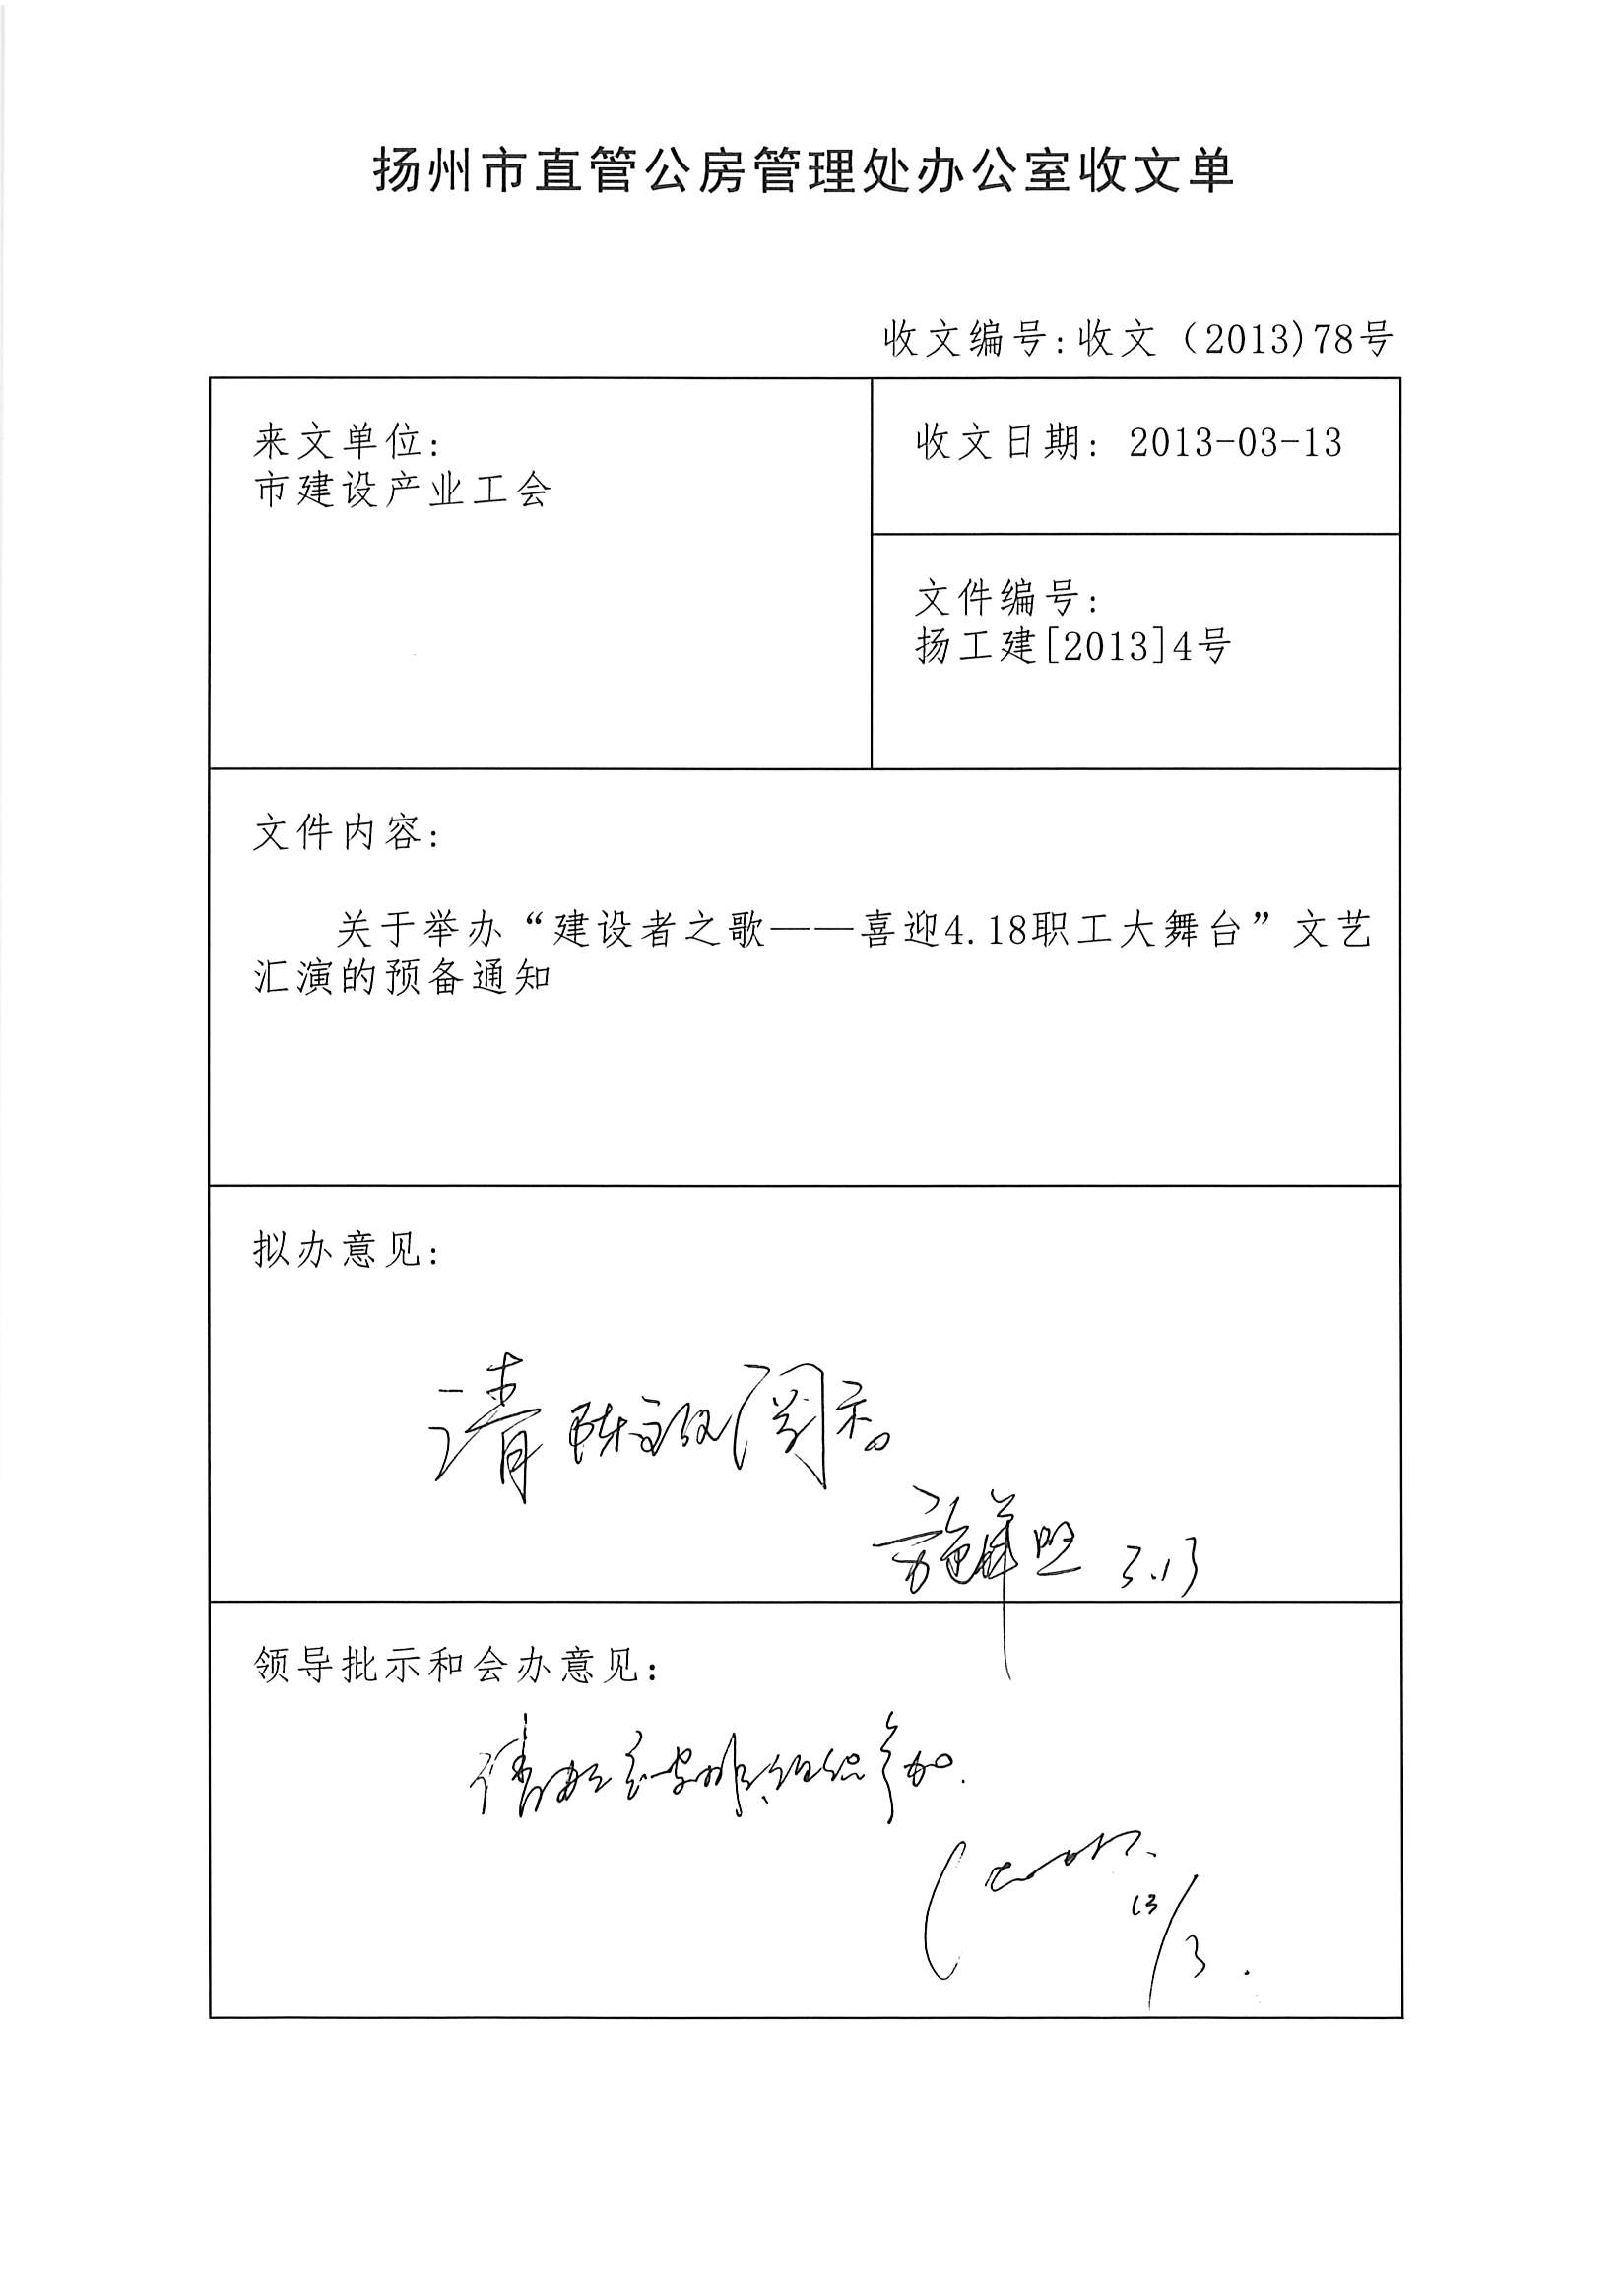 扬州市直管公房管理处办公室收文单
收文编号:收文（2013)78号
来文单位:
市建设产业工会
收文日期: 2013-03-13
文件编号:
扬工建[2013]4号
文件内容:
关于举办“建设者之歌——喜迎4.18职工大舞台”文艺
汇演的预备通知
拟办意见:
请陈 阅示。
施 3.13
领导批示和会办意见:
请 安排组织参加.
13/3.